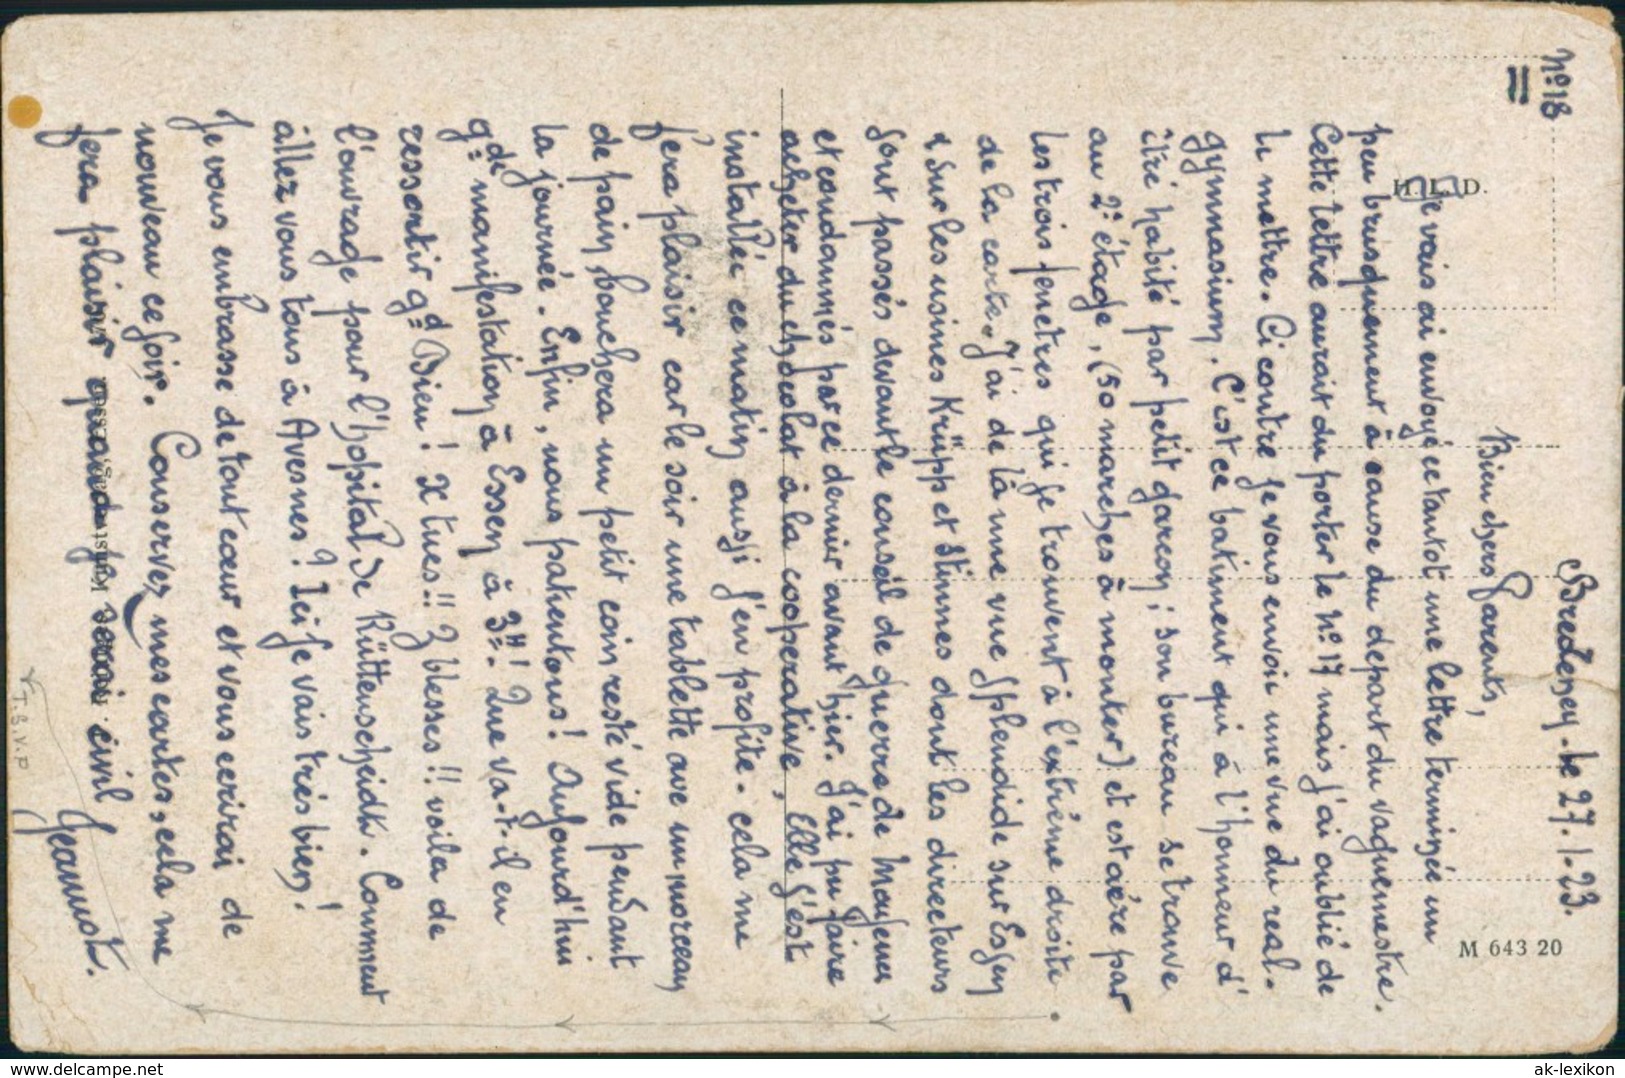 N° 18
II
Bredeney. le 27.1.23.
Bien chers Parents,
Je vais ai envoyé ce tantot une lettre terminée un
peu brusquement à cause du depart du vaguemestre.
Cette lettre aurait du porter le N° 17 mais j'ai oublié de
le mettre. Ci contre je vous envoie une vue du real-
gymnasium. C'est ce batiment qui a l'honneur d'
être habité par petit garcon; son bureau se trouve
au 2e étage, (50 marches à monter) et est aéré par
les trois fenetres qui se trouvent à l'extrême droite
de la carte. J'ai de là une vue splendide sur Essen
& sur les usines Krüpp et Stinnes dont les directeurs
sont passés devant le conseil de guerre de Mayence
et condamnés par ce dernier avant hier. J'ai pu faire
acheter du chocolat à la cooperative, Elle s'est
installée ce matin aussi j'en profite. cela me
fera plaisir car le soir une tablette ave un morceau
de pain, bouchera un petit coin resté vide pendant
la journée. Enfin, nous patientons! Aujourd'hui
gde manifestation à Essen à 3H! Que va-t-il en
ressortir gd Dieu! X tues!! Z blesses!! voila de
l'ouvrage pour l'hopital de Rüttenscheidt. Comment
allez vous tous à Avesnes? Ici je vais très bien!
Je vous embrasse de tout cœur et vous ecrirai de
nouveau ce soir. Conservez mes cartes, cela me
fera plaisir quand je serai civil
Jeannot.
T.S.V.P
H. L. D.
M 643 20
www.ak-ansichtskarten.de
ak-lexikon